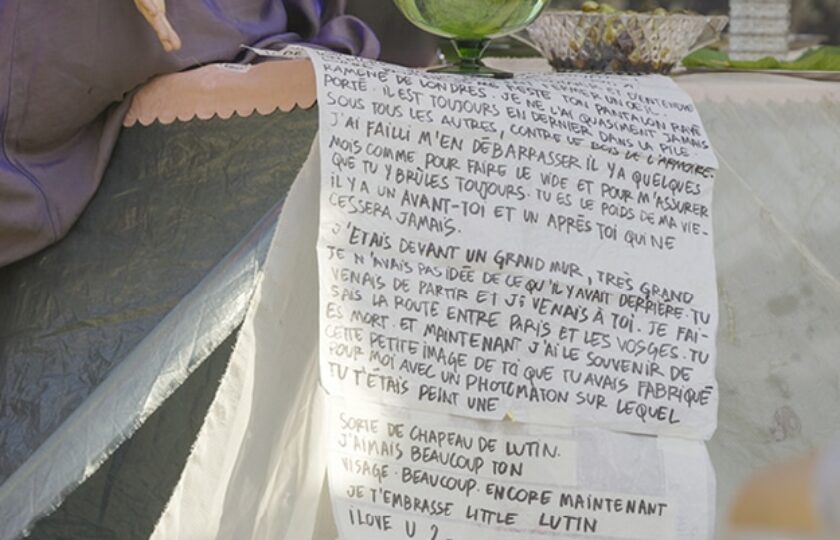 FERMER UN ŒIL.
RAMENÉ DE LONDRES. JE NE RESTE TON PANTALON RAYÉ
PORTÉ. IL EST TOUJOURS EN DERNIER DANS LA PILE
SOUS TOUS LES AUTRES, CONTRE LE BOIS DE L'ARMOIRE.
J'AI FAILLI M'EN DÉBARRASSER IL Y A QUELQUES
MOIS COMME POUR FAIRE LE VIDE ET POUR M'ASSURER
QUE TU Y BRÛLES TOUJOURS. TU ES LE POIDS DE MA VIE-
IL Y A UN AVANT-TOI ET UN APRÈS TOI QUI NE
CESSERA JAMAIS.
J'ÉTAIS DEVANT UN GRAND MUR, TRÈS GRAND
JE N'AVAIS PAS IDÉE DE CE QU'IL Y AVAIT DERRIÈRE. TU
VENAIS DE PARTIR ET JE VENAIS À TOI. JE FAI-
SAIS LA ROUTE ENTRE PARIS ET LES VOSGES. TU
ES MORT. ET MAINTENANT J'AI LE SOUVENIR DE
CETTE PETITE IMAGE DE TOI QUE TU AVAIS FABRIQUÉ
POUR MOI AVEC UN PHOTOMATON SUR LEQUEL
TU T'ÉTAIS PEINT UNE
SORTE DE CHAPEAU DE LUTIN.
J'AIMAIS BEAUCOUP TON
VISAGE. BEAUCOUP. ENCORE MAINTENANT
JE T'EMBRASSE LITTLE LUTIN
I LOVE U